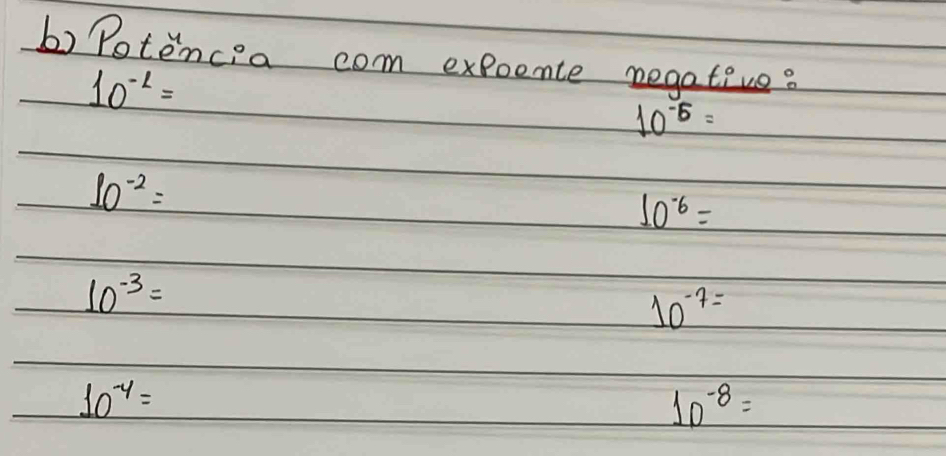 b) Potência com expoente negativo:
10⁻¹ = 10⁻⁵ =
10⁻² = 10⁻⁶ =
10⁻³ = 10⁻⁷ =
10⁻⁴ = 10⁻⁸ =